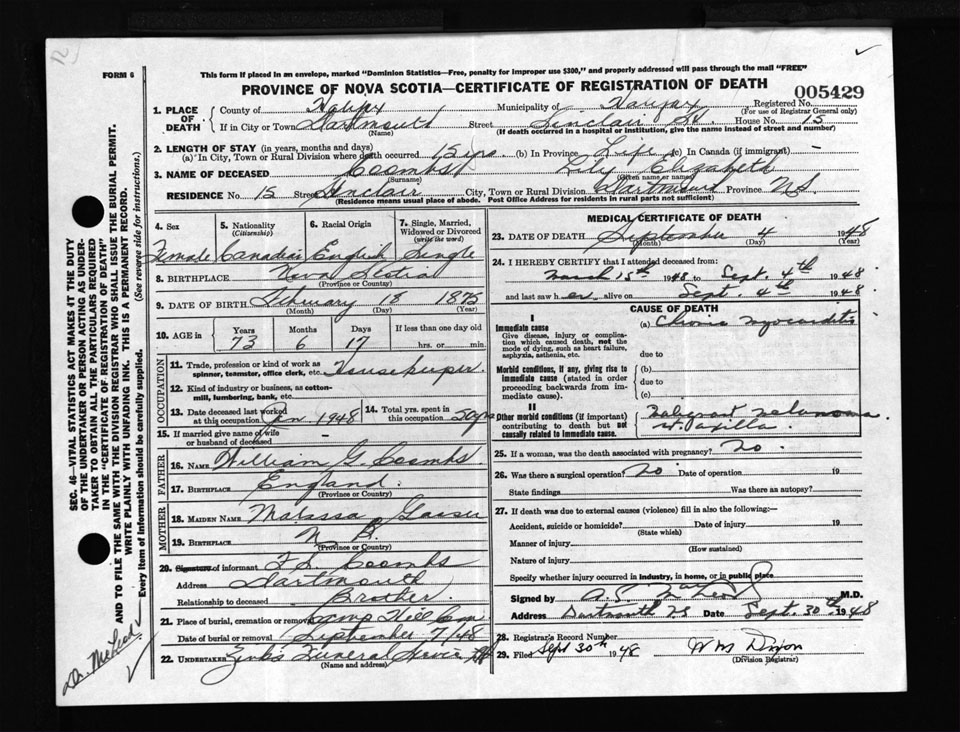 FORM 6
This form if placed in an envelope, marked "Dominion Statistics—Free, penalty for improper use $300," and properly addressed will pass through the mail "FREE"
PROVINCE OF NOVA SCOTIA—CERTIFICATE OF REGISTRATION OF DEATH
005429
1. PLACE OF DEATH County of Halifax Municipality of Halifax Registered No.
(For use of Registrar General only)
If in City or Town Dartmouth Street Sinclair St. House No. 15
(Name) (If death occurred in a hospital or institution, give the name instead of street and number)
2. LENGTH OF STAY (in years, months and days)
(a) In City, Town or Rural Division where death occurred 15 yrs. (b) In Province Life (c) In Canada (if immigrant) —
3. NAME OF DECEASED Coombs Lily Elizabeth
(Surname) (Given name or names)
RESIDENCE No. 15 Street Sinclair City, Town or Rural Division Dartmouth Province N.S.
(Residence means usual place of abode. Post Office Address for residents in rural parts not sufficient)
4. Sex 5. Nationality (Citizenship) 6. Racial Origin 7. Single, Married, Widowed or Divorced (write the word)
Female Canadian English Single
8. BIRTHPLACE Nova Scotia
(Province or Country)
9. DATE OF BIRTH February 18 1875
(Month) (Day) (Year)
10. AGE in Years Months Days If less than one day old
73 6 17 hrs. or min.
OCCUPATION
11. Trade, profession or kind of work as spinner, teamster, office clerk, etc. Housekeeper
12. Kind of industry or business, as cotton-mill, lumbering, bank, etc.
13. Date deceased last worked at this occupation Jan. 1948 14. Total yrs. spent in this occupation 50 yrs
15. If married give name of wife or husband of deceased —
FATHER
16. NAME William G. Coombs
17. BIRTHPLACE England
(Province or Country)
MOTHER
18. MAIDEN NAME Malissa
19. BIRTHPLACE N B.
(Province or Country)
20. Signature of informant Coombs
Address Dartmouth
Relationship to deceased Brother
21. Place of burial, cremation or removal Camp Hill Cem
Date of burial or removal September 7/48
22. UNDERTAKER Zinks Funeral Service
(Name and address)
MEDICAL CERTIFICATE OF DEATH
23. DATE OF DEATH September 4 1948
(Month) (Day) (Year)
24. I HEREBY CERTIFY that I attended deceased from:
March 15th 1948 to Sept. 4th 1948
and last saw her alive on Sept. 4th 1948
CAUSE OF DEATH
I
Immediate cause (a) Chronic myocarditis
Give disease, injury or complication which caused death, not the mode of dying, such as heart failure, asphyxia, asthenia, etc.
due to
Morbid conditions, if any, giving rise to immediate cause (stated in order proceeding backwards from immediate cause).
(b)
due to
(c)
II
Other morbid conditions (if important) contributing to death but not causally related to immediate cause.
Malignant Melanoma
rt. axilla.
25. If a woman, was the death associated with pregnancy? No.
26. Was there a surgical operation? No Date of operation 19
State findings Was there an autopsy?
27. If death was due to external causes (violence) fill in also the following:—
Accident, suicide or homicide? Date of injury 19
(State which)
Manner of injury
(How sustained)
Nature of injury
Specify whether injury occurred in industry, in home, or in public place
Signed by M.D.
Address Dartmouth NS Date Sept. 30th 1948
28. Registrar's Record Number
29. Filed Sept 30th 1948 Wm Dixon
(Division Registrar)
SEC. 46—VITAL STATISTICS ACT MAKES AT THE DUTY
OF THE UNDERTAKER OR PERSON ACTING AS UNDERTAKER TO OBTAIN ALL THE PARTICULARS REQUIRED
IN THE "CERTIFICATE OF REGISTRATION OF DEATH"
AND TO FILE THE SAME WITH THE DIVISION REGISTRAR WHO SHALL ISSUE THE BURIAL PERMIT.
WRITE PLAINLY WITH UNFADING INK. THIS IS A PERMANENT RECORD.
Every item of information should be carefully supplied. (See reverse side for instructions.)
Dr. McLeod